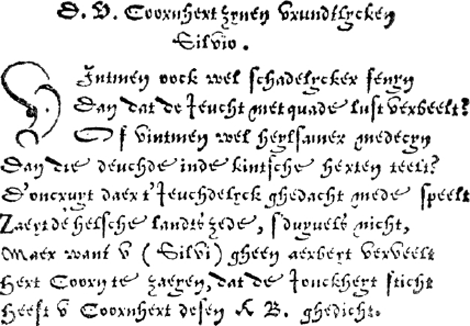 D. V. Coornhert zynen vrundtlycken
Silvio.
Vintmen oock wel schadelycker fenyn
Dan dat de Jeucht met quade lust verbeelt?
Of vintmen wel heylsamer medecyn
Dan die deuchde inde kintsche herten teelt?
D'oncruyt daer t'Jeuchdelyck ghedacht mede speelt
Zaeyt de helsche landts zede, s'duyvels nicht,
Maer want v (Silvi) gheen aerbeyt verveelt
Hert Coorn te zaeyen, dat de Jonckheyt sticht
Heeft v Coornhert desen A B. ghedicht.